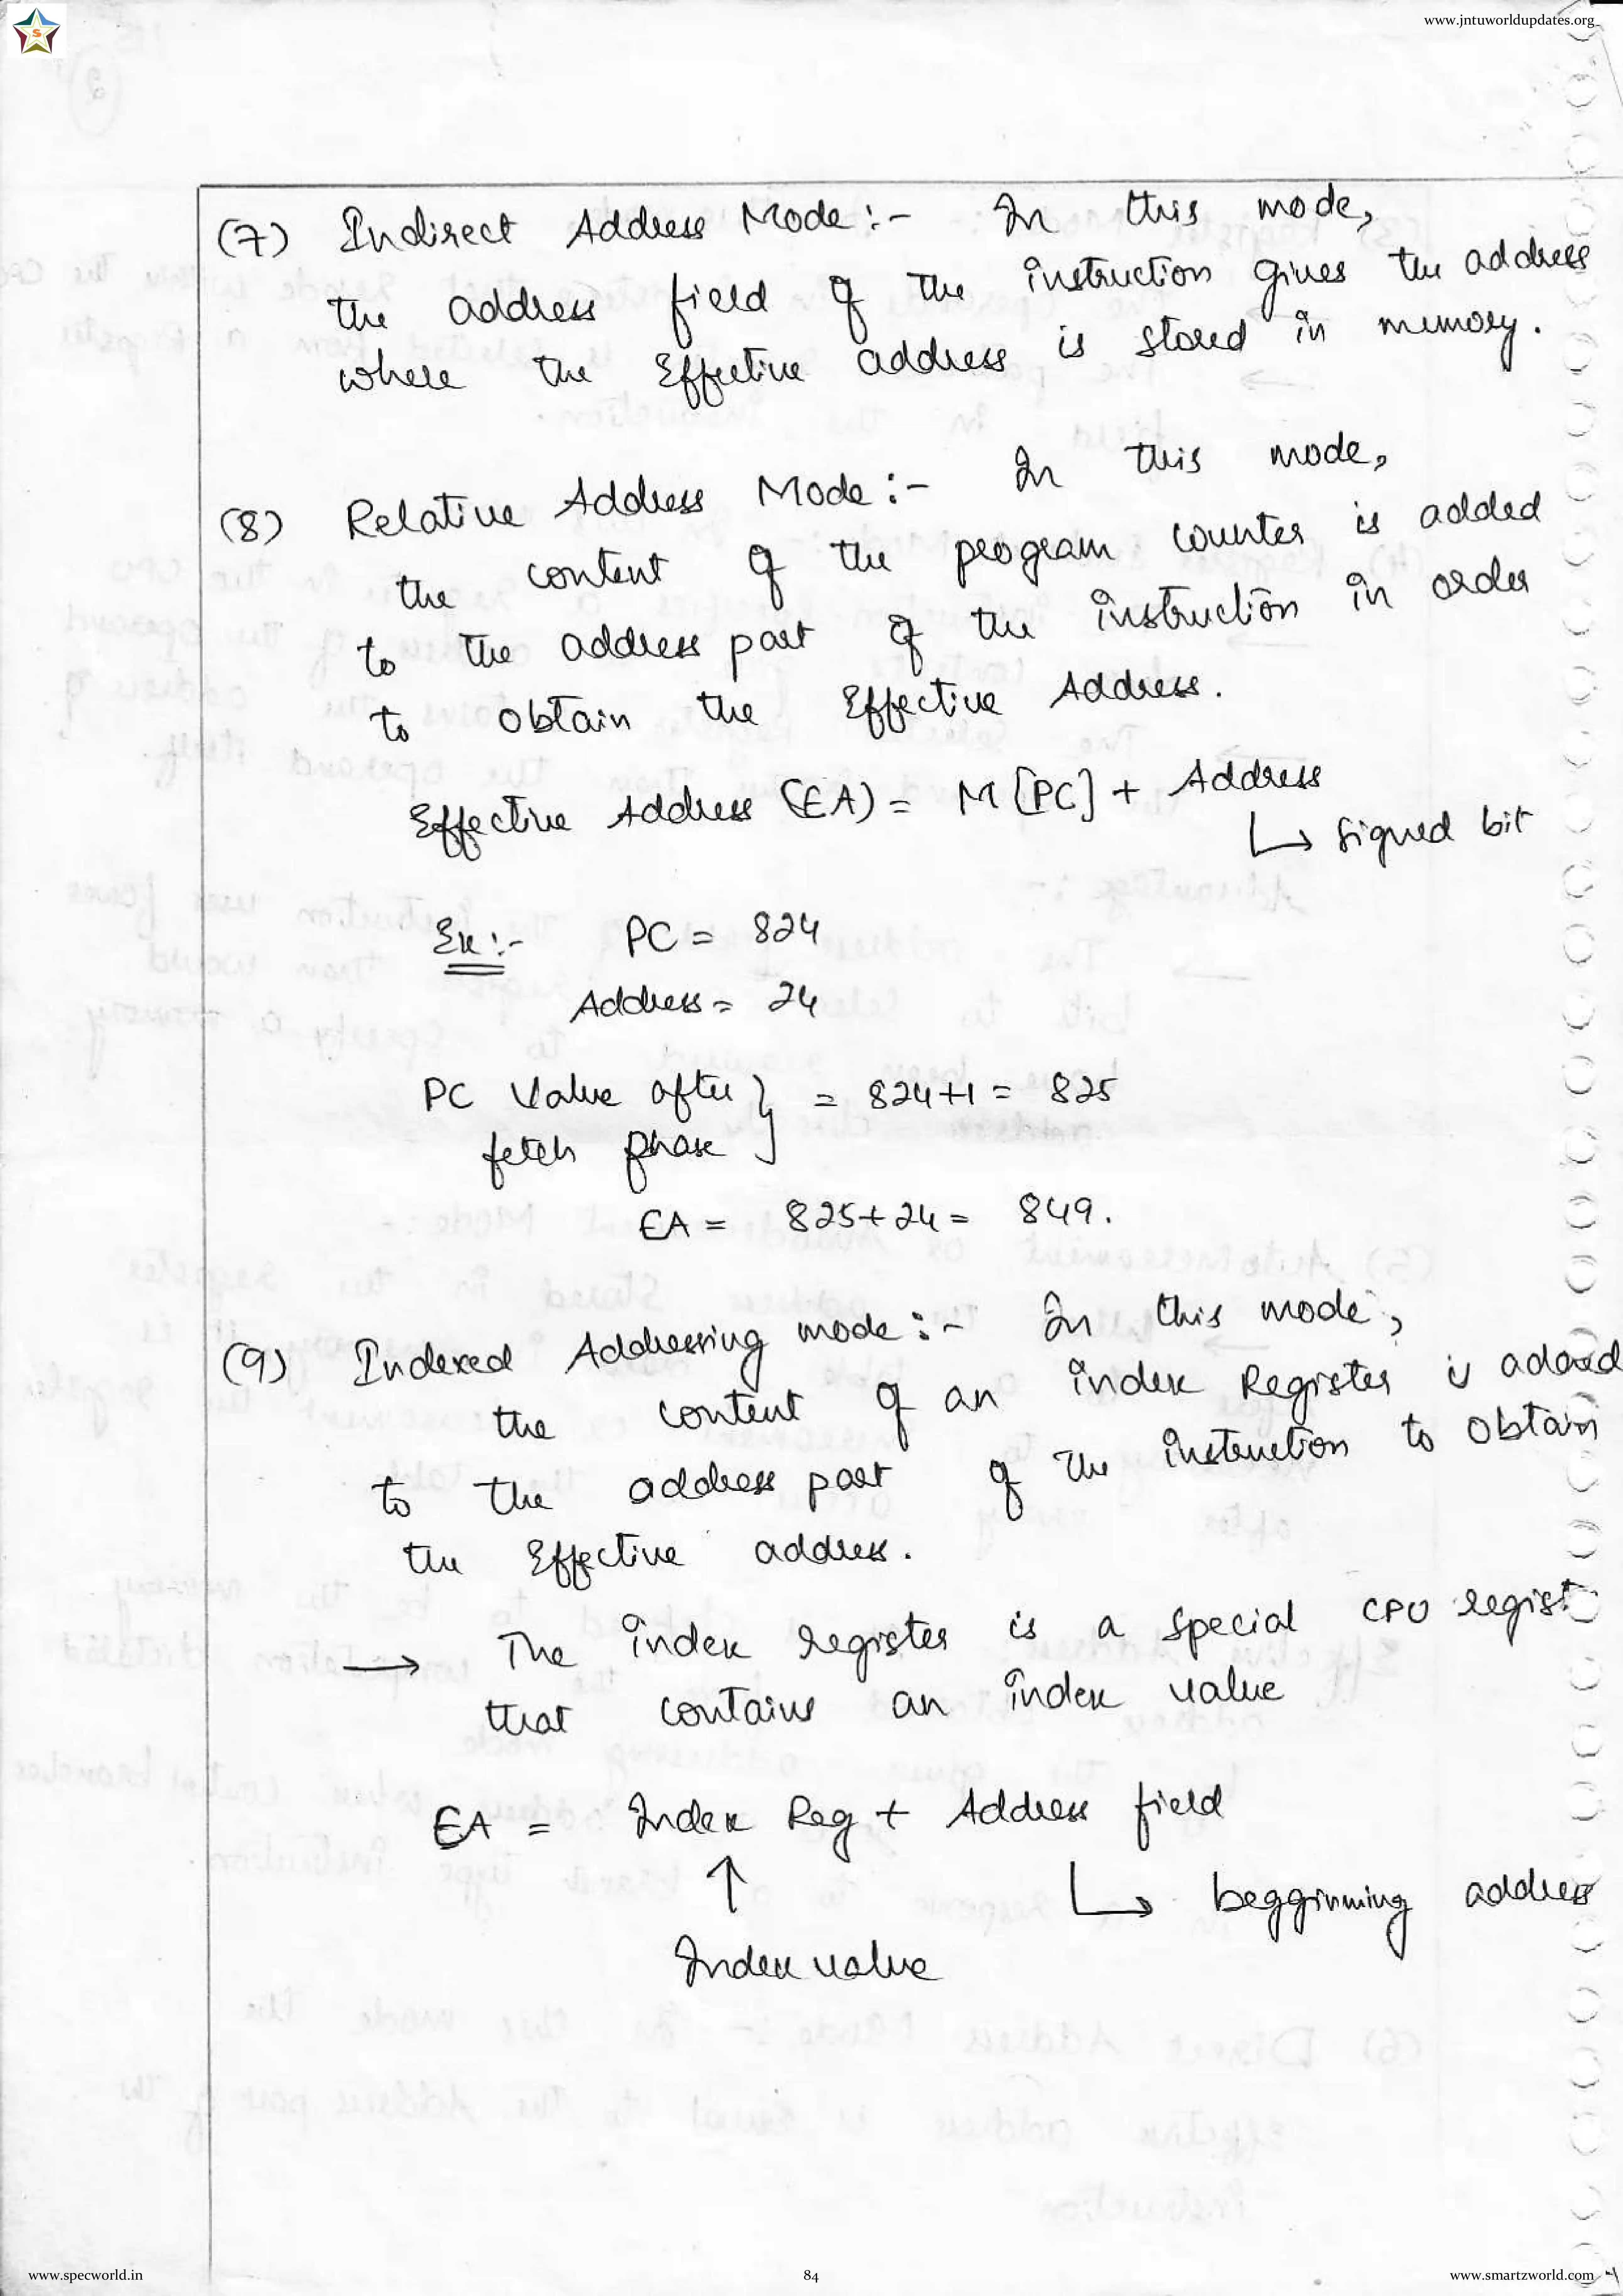 www.jntuworldupdates.org
S
(7) Indirect Address Mode:- In this mode,
the address field of the instruction gives the address
where the Effective address is stored in memory.
(8) Relative Address Mode:- In this mode,
the content of the program counter is added
to the address part of the instruction in order
to obtain the Effective Address.
Effective Address (EA) = M[PC] + Address
↳ signed bit
Ex:- PC = 824
Address = 24
PC Value after } = 824+1 = 825
fetch phase
EA = 825+24 = 849.
(9) Indexed Addressing mode:- In this mode,
the content of an index Register is added
to the address part of the instruction to obtain
the Effective address.
→ The index register is a special CPU regist
that contains an index value
EA = Index Reg + Address field
↑ ↳ beggining address
Index value
www.specworld.in
84
www.smartzworld.com